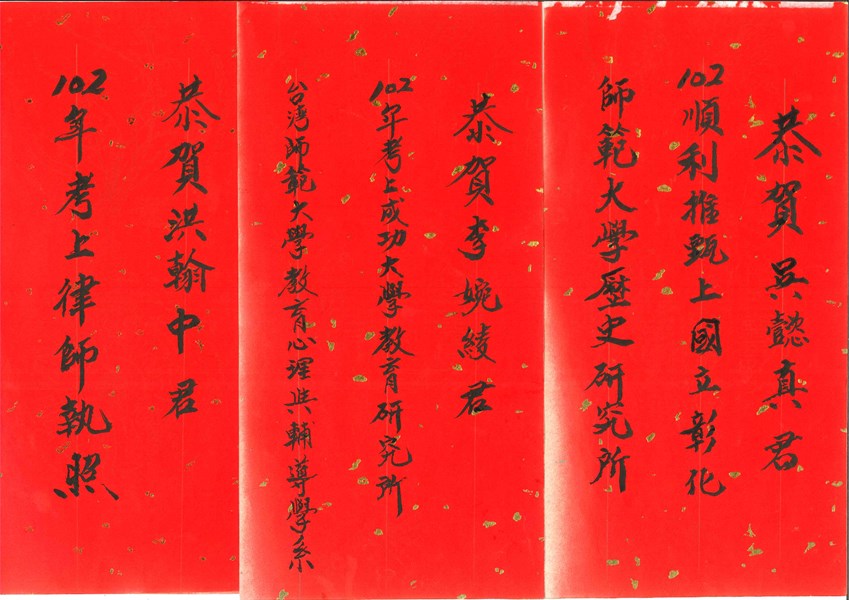 恭賀吳懿真君
102順利推甄上國立彰化
師範大學歷史研究所
恭賀李婉綾君
102年考上成功大學教育研究所
台灣師範大學教育心理與輔導學系
恭賀洪翰中君
102年考上律師執照